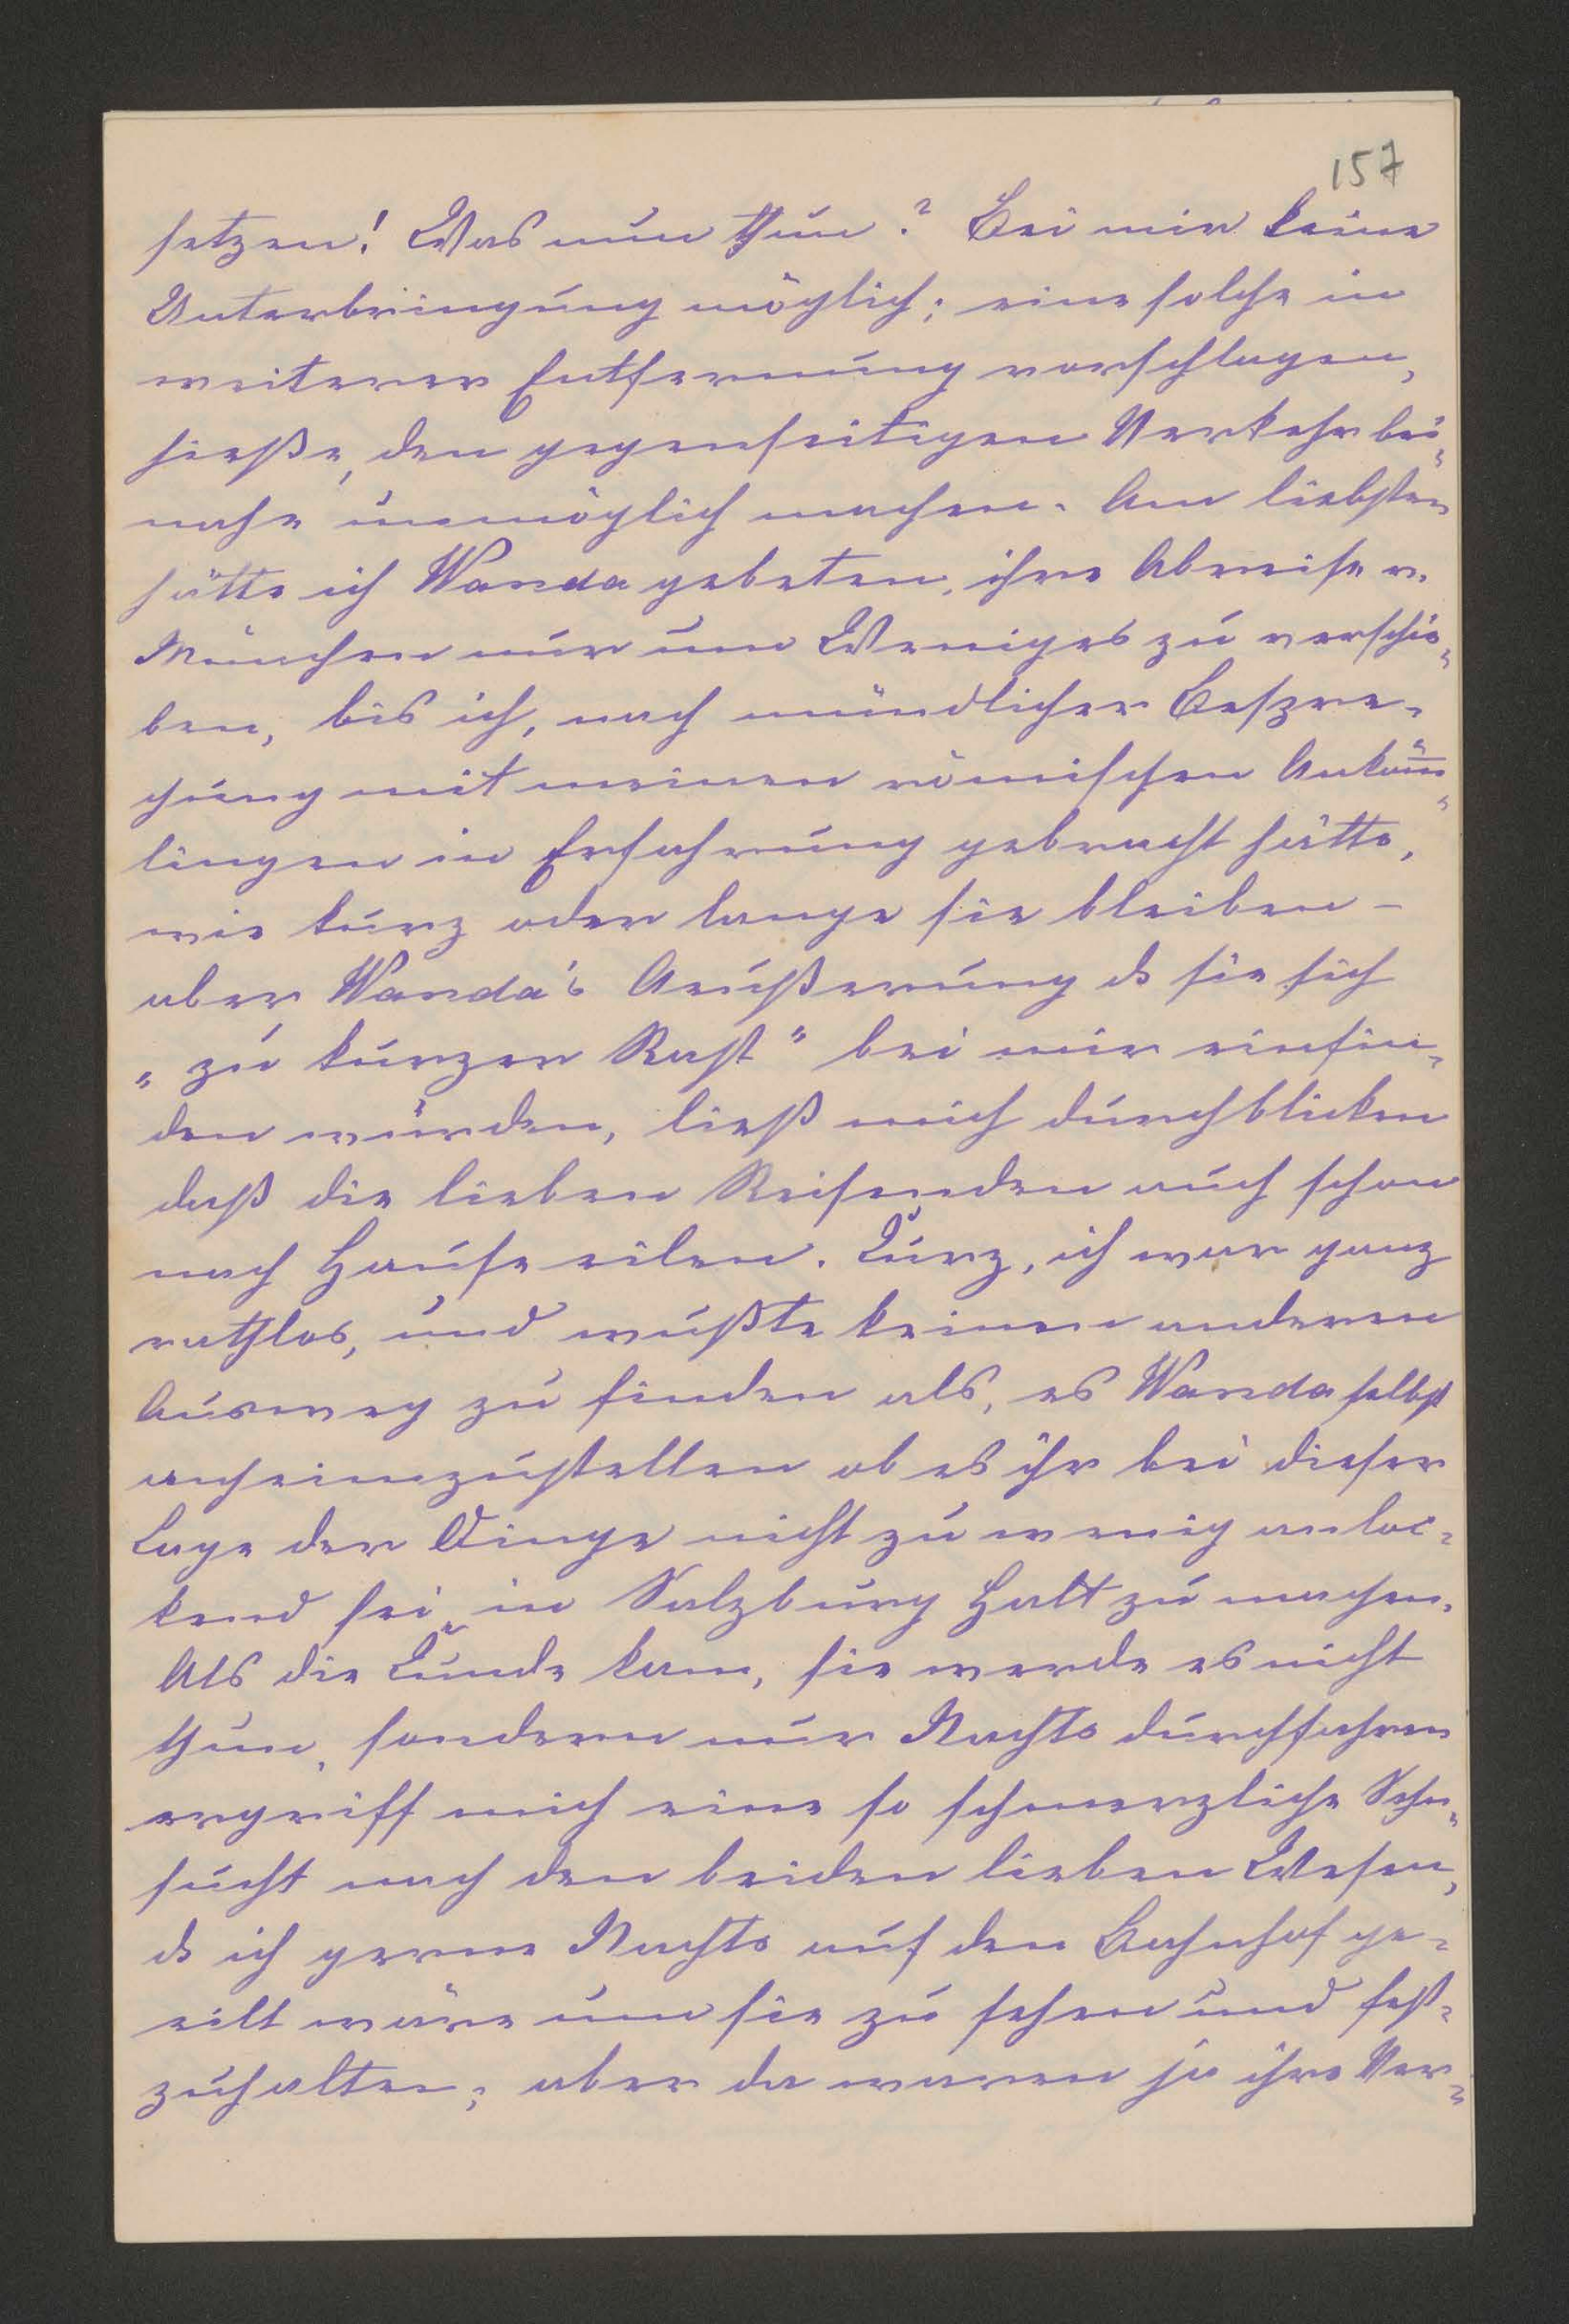 157
setzen! Was nun thun? Bei mir keine
Unterbringung möglich; eine solche in
weiterer Entfernung vorschlagen,
hieße, den gegenseitigen Verkehr bei-
nahe unmöglich machen. Am liebsten
hätte ich Wanda gebeten, ihre Abreise v.
München nur um Weniges zu verschie-
ben, bis ich, nach mündlicher Bespre-
chung mit meinen römischen Anköm̄-
lingen in Erfahrung gebracht hätte,
wie kurz oder lange sie bleiben –
aber Wanda's Aeußerung ds sie sich
"zu kurzer Rast" bei mir einfin-
den würden, ließ mich durchblicken
daß die lieben Reisenden auch schon
nach Hause eilen. Kurz, ich war ganz
rathlos, und wußte keinen anderen
Ausweg zu finden als, es Wanda selbst
anheimzustellen ob es ihr bei dieser
Lage der Dinge nicht zu wenig anloc-
kend sei, in Salzburg Halt zu machen.
Als die Kunde kam, sie werde es nicht
thun, sondern nur Nachts durchfahren
ergriff mich eine so schmerzliche Sehn-
sucht nach den beiden lieben Wesen,
ds ich gerne Nachts auf den Bahnhof ge-
eilt wäre um sie zu sehen und fest-
zuhalten; aber da waren ja ihre Ver-